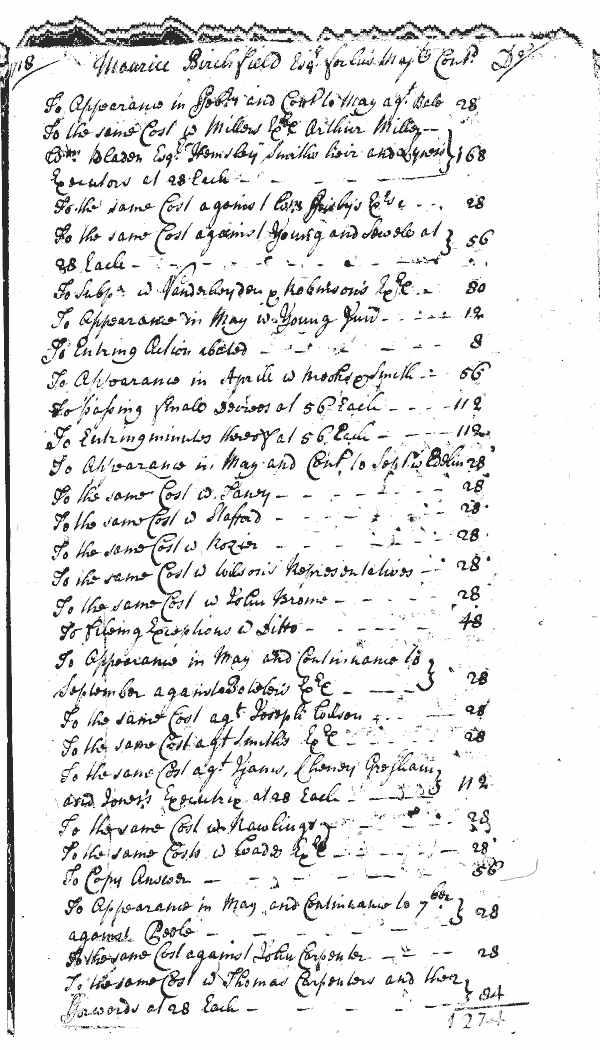 1718 Maurice Birchfield Esqr for his Majts Cont. Dr
To Appearance in Febry and Cont to May agt Bale 28
To the same Cost w Millers Exrs Arthur Miller
Bladen Esqr Hemsley Smiths heir and } 168
Executors at 28 Each
To the same Cost against Exrs 28
To the same Cost against Young and Sewele at } 56
28 Each
To Subpa w Vanderheyden & Robinson's Exrs 80
To Appearance in May w Young Junr 12
To Entring Action abated 8
To Appearance in Aprill w Brooke & Smith 56
To passing finale Decrees at 56 Each 112
To Entring minutes thereof at 56 Each 112
To Appearance in May and Cont. to Septr w Edelin 28
To the same Cost w Taney 28
To the same Cost w Stafford 28
To the same Cost w Rozier 28
To the same Cost w Wilson's Representatives 28
To the same Cost w John Brome 28
To fileing Exceptions w Ditto 48
To Appearance in May and Continuance to }
September against Boteler's Exrs 28
To the same Cost agt Joseph Wilson 28
To the same Cost agt Smith's Exrs 28
To the same Cost agt Iiams, Cheney Gresham }
and Jones's Executrix at 28 Each 112
To the same Cost w Rawlings 28
To the same Costs w Wades Exrs 28
To Copy Answer 56
To Appearance in May and Continuance to 7ber }
against Poole 28
To the same Cost against John Carpenter 28
To the same Cost w Thomas Carpenters and ther }
at 28 Each 84
1274